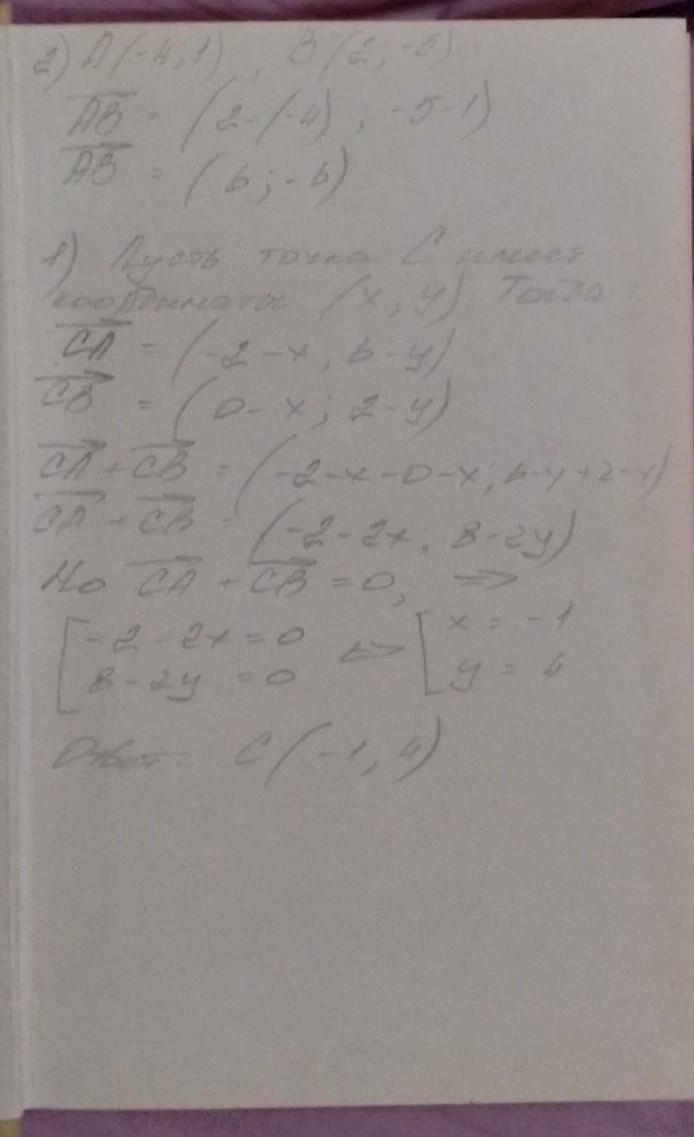 2) A(-4,1), B(2;-5)
AB = (2-(-4); -5-1)
AB = (6;-6)
1) Пусть точка C имеет
координаты (x; y) Тогда
CA = (-2-x; 6-y)
CB = (0-x; 2-y)
CA + CB = (-2-x-0-x; 6-y+2-y)
CA + CB = (-2-2x; 8-2y)
Но CA + CB = 0, =>
[-2-2x=0 <=> [x = -1
8-2y = 0 y = 4
Ответ: C(-1, 4)